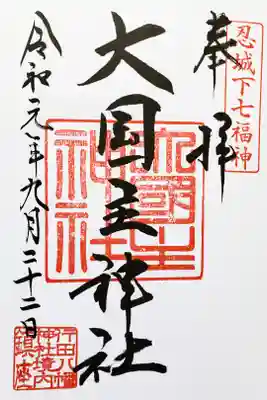 忍城下七福神
奉拝
大国主神社
大国主
神社
令和元年九月二十二日
行田八幡
神社境内
鎮座